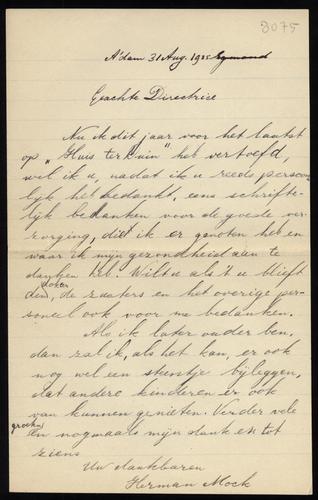 3075
A'dam 31 Aug. 1925 Egmond
Geachte Directrice
Nu ik dit jaar voor het laatst
op „Huis ter Duin" heb vertoefd,
wil ik u, nadat ik u reeds persoon
lijk heb bedankt, eens schrifte-
lijk bedanken voor de goede ver-
zorging, die ik er genoten heb en
waar ik mijn gezondheid aan te
danken heb. Wilt u als 't u blieft
den dokter, de zusters en het overige per-
soneel ook voor me bedanken.
Als ik later ouder ben,
dan zal ik, als het kan, er ook
nog wel een steentje bijleggen,
dat andere kinderen er ook
van kunnen genieten. Verder vele
groeten
en nogmaals mijn dank en tot
ziens
Uw dankbaren
Herman Mock